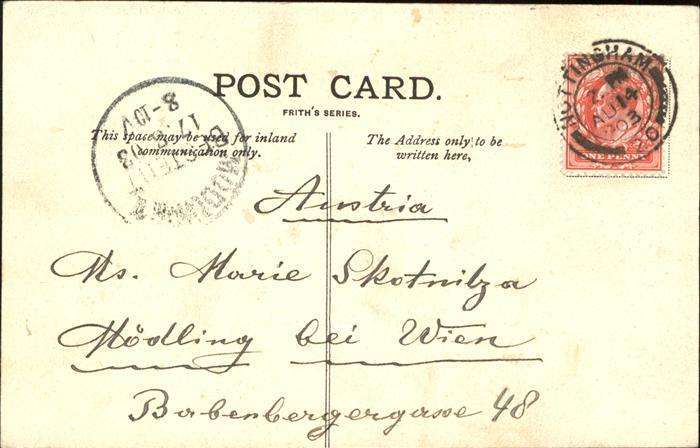 POST CARD.
FRITH'S SERIES.
This space may be used for inland
communication only.
The Address only to be
written here,
NOTTINGHAM
AU 14
03
ONE PENNY
BESTELLT
MÖDLING
Austria
Ms. Marie Skotnitza
Mödling bei Wien
Babenbergergasse 48